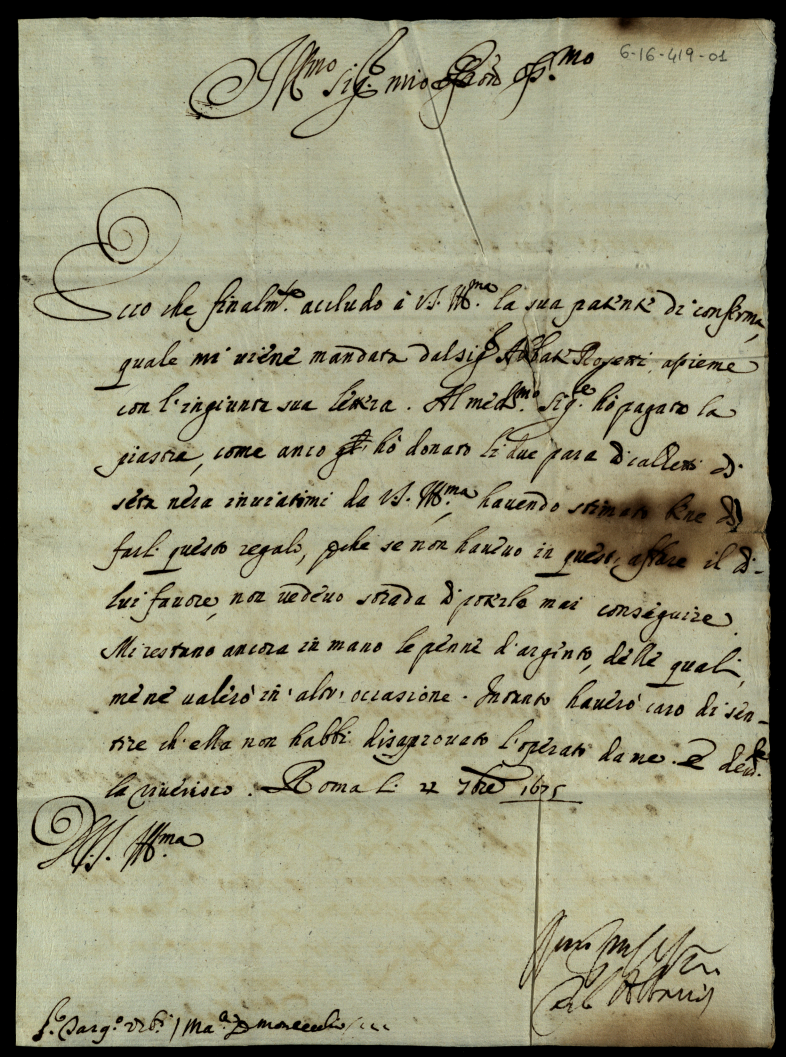 6-16-419-01
Ill.mo Sig.r mio P̃ron
Ecco che finalm.te accludo à V.S. Ill.ma la sua patente di conferma,
quale mi viene mandata dal Sig.r Abbate Rosetti, assieme
con l'ingiunta sua lettera. Al med.mo Sig.re hò pagato la
piastra, come anco gli hò donato li due para di calzetti di
seta nera inviatimi da V.S. Ill.ma, havendo stimato bene di
farli questo regalo, p̃che se non havevo in questo affare il di
lui favore, non vedevo strada di poterlo mai conseguire.
Mi restano ancora in mano le penne d'argento, delle quali
mene valerò in altra occasione. Intanto haverò caro di sen-
tire ch'ella non habbi disaprovato l'operato da me. E
la riverisco. Roma li 22 7bre 1675
D. V.S. Ill.ma
Carlo Albani